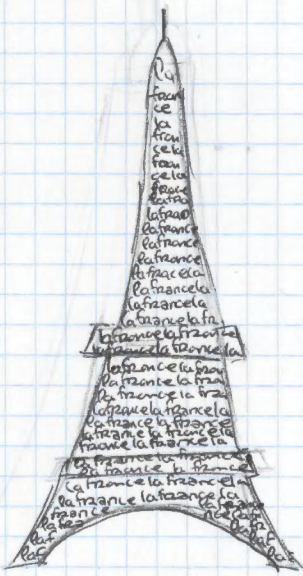 la
fran
ce
la
fran
ce la
fran
ce la
france
la fra
la fran
la france
la france
la france
la francela
la francela
la francela
la francela fr
la francela france
la francela francela
la francela fran
la francela fran
la francela fra
la francela francela
la francela france
la francela francela
france la francela
la francela france
la francela france
la francela francela
la france lafrance la
france la france
la fra ce la fr
laf laf
laf laf